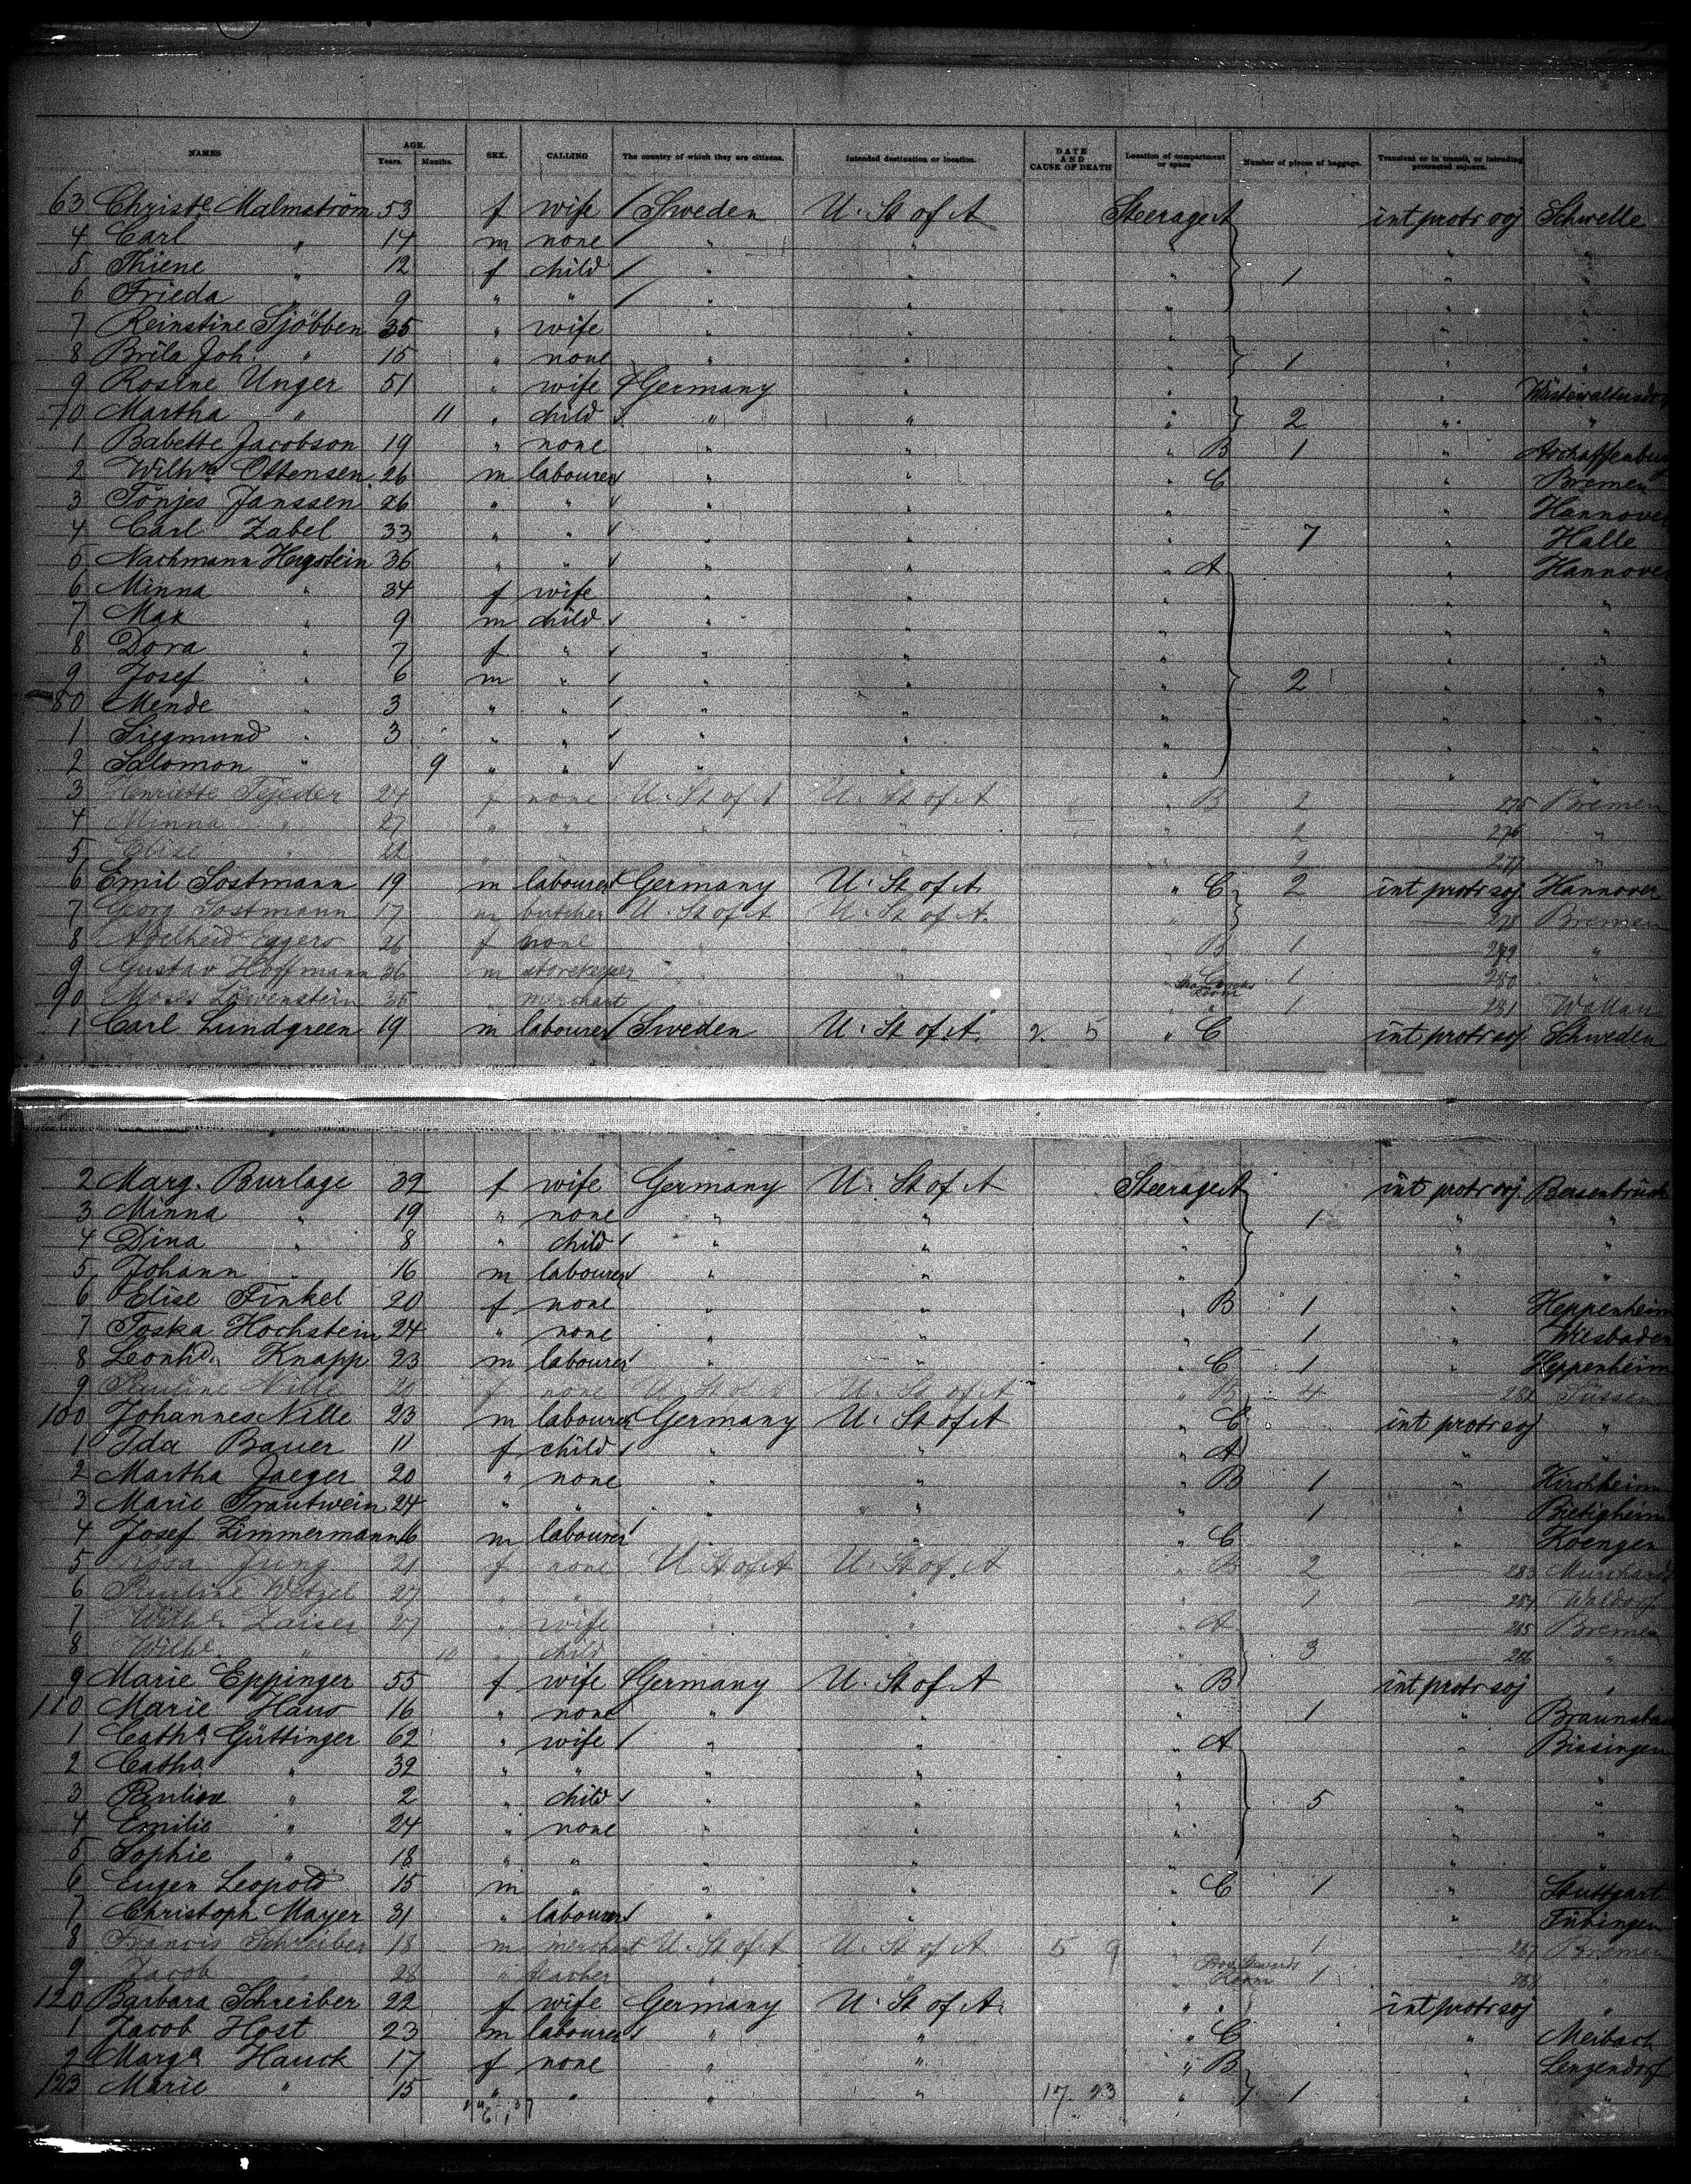 NAMES AGE. SEX. CALLING The country of which they are citizens. Intended destination or location. DATE AND CAUSE OF DEATH Location of compartment or space Number of pieces of baggage. Transient or in transit, or intending protracted sojourn.
Years. Months.
63 Christe Malmström 53 f wife Sweden U. St of A Steerage A int protr soj Schwelle
4 Carl " 14 m none " " " " "
5 Thiene " 12 f child " " " 1 " "
6 Frieda " 9 " " " " " " "
7 Reinstine Sjöbben 35 " wife " " " " "
8 Brita Joh. " 15 " none " " " 1 " "
9 Rosine Unger 51 " wife Germany " " "
70 Martha " 11 " child " " " 2 " "
1 Babette Jacobson 19 " none " " " B 1 "
2 Wilhm Ottensen 26 m labourer " " " C " Bremen
3 Tönjes Janssen 26 " " " " " " Hannover
4 Carl Zabel 33 " " " " " 7 " Halle
5 Nachmann 36 " " " " " A " Hannover
6 Minna " 34 f wife " " " " "
7 Max " 9 m child " " " " "
8 Dora " 7 f " " " " " "
9 Josef " 6 m " " " " 2 " "
80 Mende " 3 " " " " " " "
1 Siegmund " 3 " " " " " " "
2 Salomon " 9 " " " " " " "
3 Henriette Tejeder 24 f none U. St of A U. St of A " B 2 275 Bremen
4 Minna " 27 " " " " " 2 276 "
5 Elise " 22 " " " " " 2 277 "
6 Emil Sostmann 19 m labourer Germany U. St of A " C 2 int protr soj Hannover
7 Georg Sostmann 17 m butcher U. St of A U. St of A " 278 Bremen
8 Adelheid Eggers 26 f none " " " B 1 279 "
9 Gustav Hoffmann 36 m storekeeper " " " C 1 280 "
90 Moses Löwenstein 35 " merchant " " Room 1 281
1 Carl Lundgreen 19 m labourer Sweden U. St of A. 2. 5 " C int protr soj Schweden
2 Marg. Burlage 39 f wife Germany U. St of A Steerage A int protr soj Bersenbrück
3 Minna " 19 " none " " " 1 " "
4 Dina " 8 " child " " " " "
5 Johann " 16 m labourer " " " " "
6 Elise Finkel 20 f none " " " B 1 " Heppenheim
7 Toska Hochstein 24 " none " " " 1 " Wiesbaden
8 Leonhd. Knapp 23 m labourer " " " C 1 " Heppenheim
9 Pauline Nille 20 f none U. St of A U. St of A " B 4 282
100 Johannes Nille 23 m labourer Germany U. St of A " C int protr soj "
1 Ida Bauer 11 f child " " " A " "
2 Martha Jaeger 20 " none " " " B 1 " Kirchheim
3 Marie Trautwein 24 " " " " " 1 " Bietigheim
4 Josef Zimmermann 16 m labourer " " " C " Koengen
5 Rosa Jung 21 f none U. St of A U. St of A " B 2 283
6 Pauline Wetzel 27 " " " " " 1 284 Waldorf
7 Wilhe Zaiser 27 " wife " " " A 285 Bremen
8 Wilhe " 10 " child " " " 3 286 "
9 Marie Eppinger 55 f wife Germany U. St of A " B int protr soj "
110 Marie Haus 16 " none " " " 1 "
1 Catha Güttinger 62 " wife " " " A " Bissingen
2 Catha " 39 " " " " " " "
3 Pauline " 2 " child " " " 5 " "
4 Emilie " 24 " none " " " " "
5 Sophie " 18 " " " " " " "
6 Eugen Leopold 15 m " " " " C 1 " Stuttgart
7 Christoph Mayer 31 " labourer " " " " Tübingen
8 Francis Schreiber 18 m merchant U. St of A U. St of A 5 9 " 1 287 Bremen
9 Jacob " 28 " teacher " " " Room 1 288 "
120 Barbara Schreiber 22 f wife Germany U. St of A. " " int protr soj "
1 Jacob Host 23 m labourer " " " C " Meibach
2 Marga Hauck 17 f none " " " B " Lengendorf
123 Marie " 15 " " " " 17. 23 " 1 " "